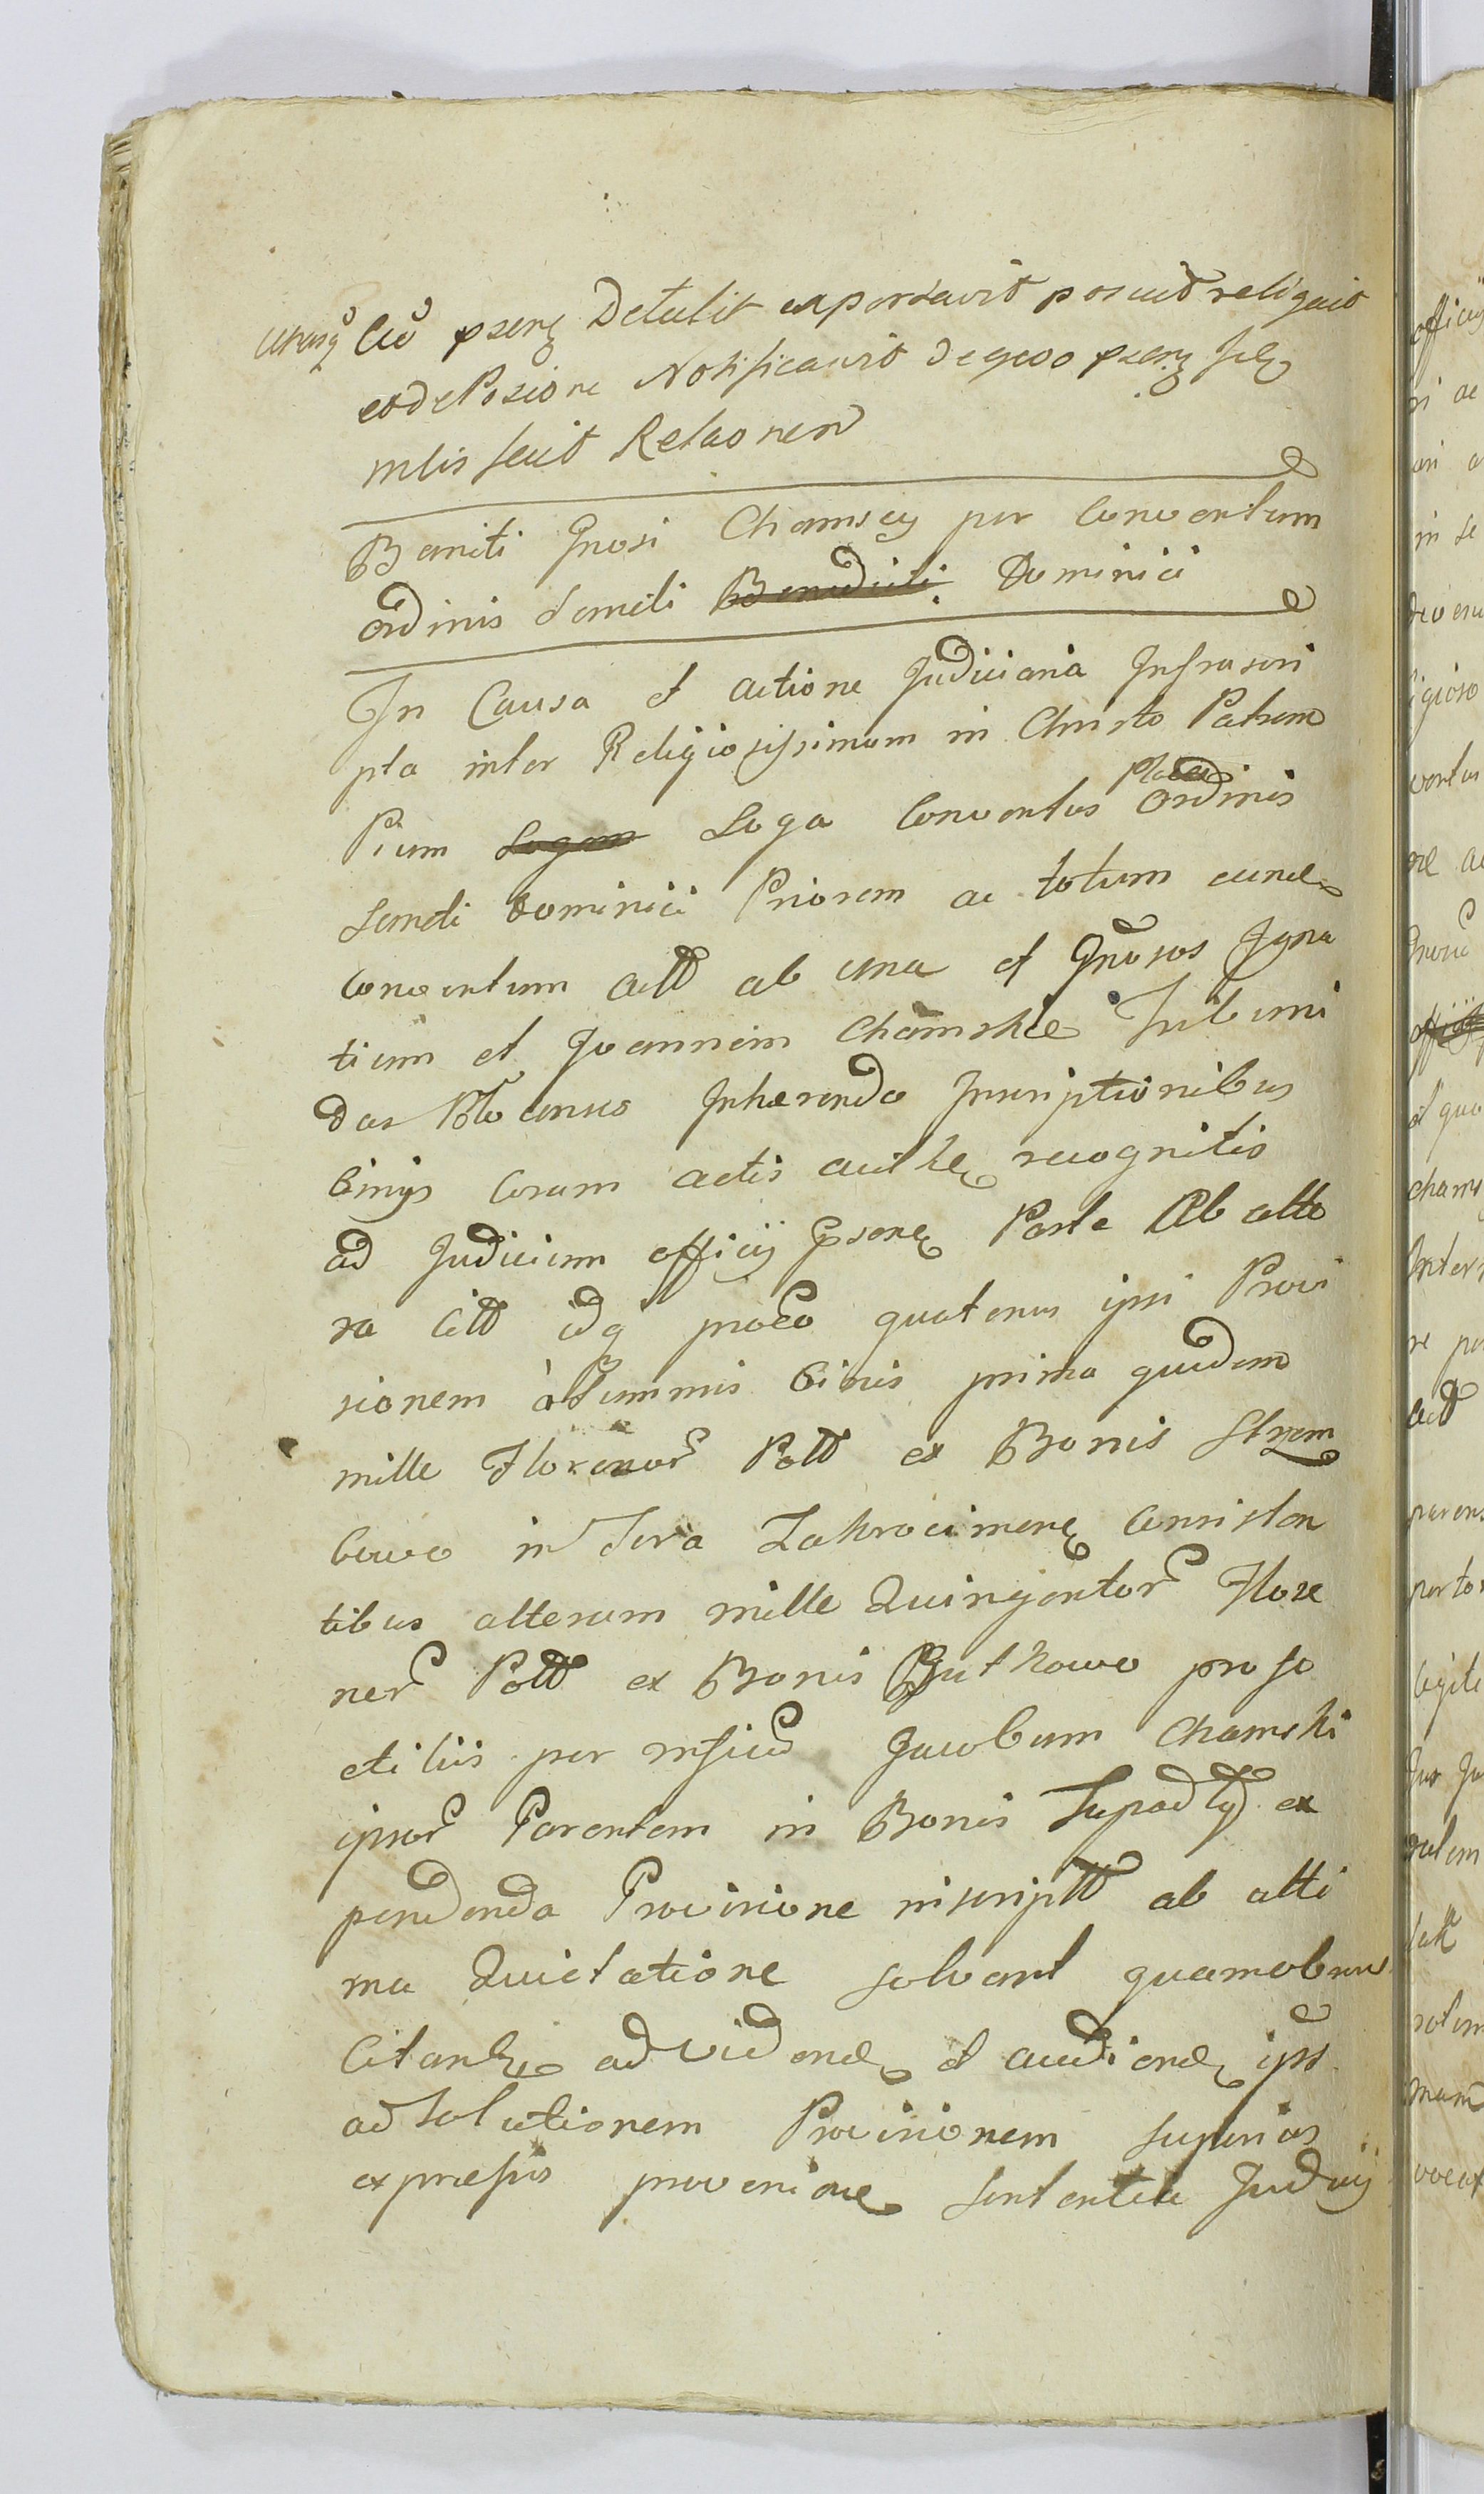 Citaõ psenz Detulit exportavit posuit reliquit
eode Posione Notificavit de quo psenz sue
mlis fecit Relaonem
Baniti Gnosi Chamscy per Conventum
Ordinis Sancti Benedicti Dominici
In Causa et actione Judiciaria Infrascri
pta inter Religiosissimum in Christo Patrem
Pium Logam Loga Conventus Ordinis
Sancti Dominici Priorem ac totum eund
Conventum Actt ab una et Gnosos Igna
tium et Joannem Chamskie Tribuni
das Plocenses Inherendo Inscriptionibus
binis Coram actis authen recognitis
ad Judicium officij psens Parte Ab alte
ra Citt idq proeo quatenus ipsi Provi
sionem à Summis binis prima quidem
mille Florenor Pott ex Bonis Strzem
bowo in Terra Zakrocimens consisten
tibus alteram mille Quingentor Flore
nor Pott ex Bonis Gutkowo pro so
etiliis per Mficum Jacobum Chamski
ipsor Parentem in Bonis Supadly ex
pendenda Provisione inscriptt ab ulti
ma Quietatione solvant quamobrem
Citantr ad vidend et audiend ipsos
ad Solutionem Provisionem superius
expressis provenione sententia Judicij